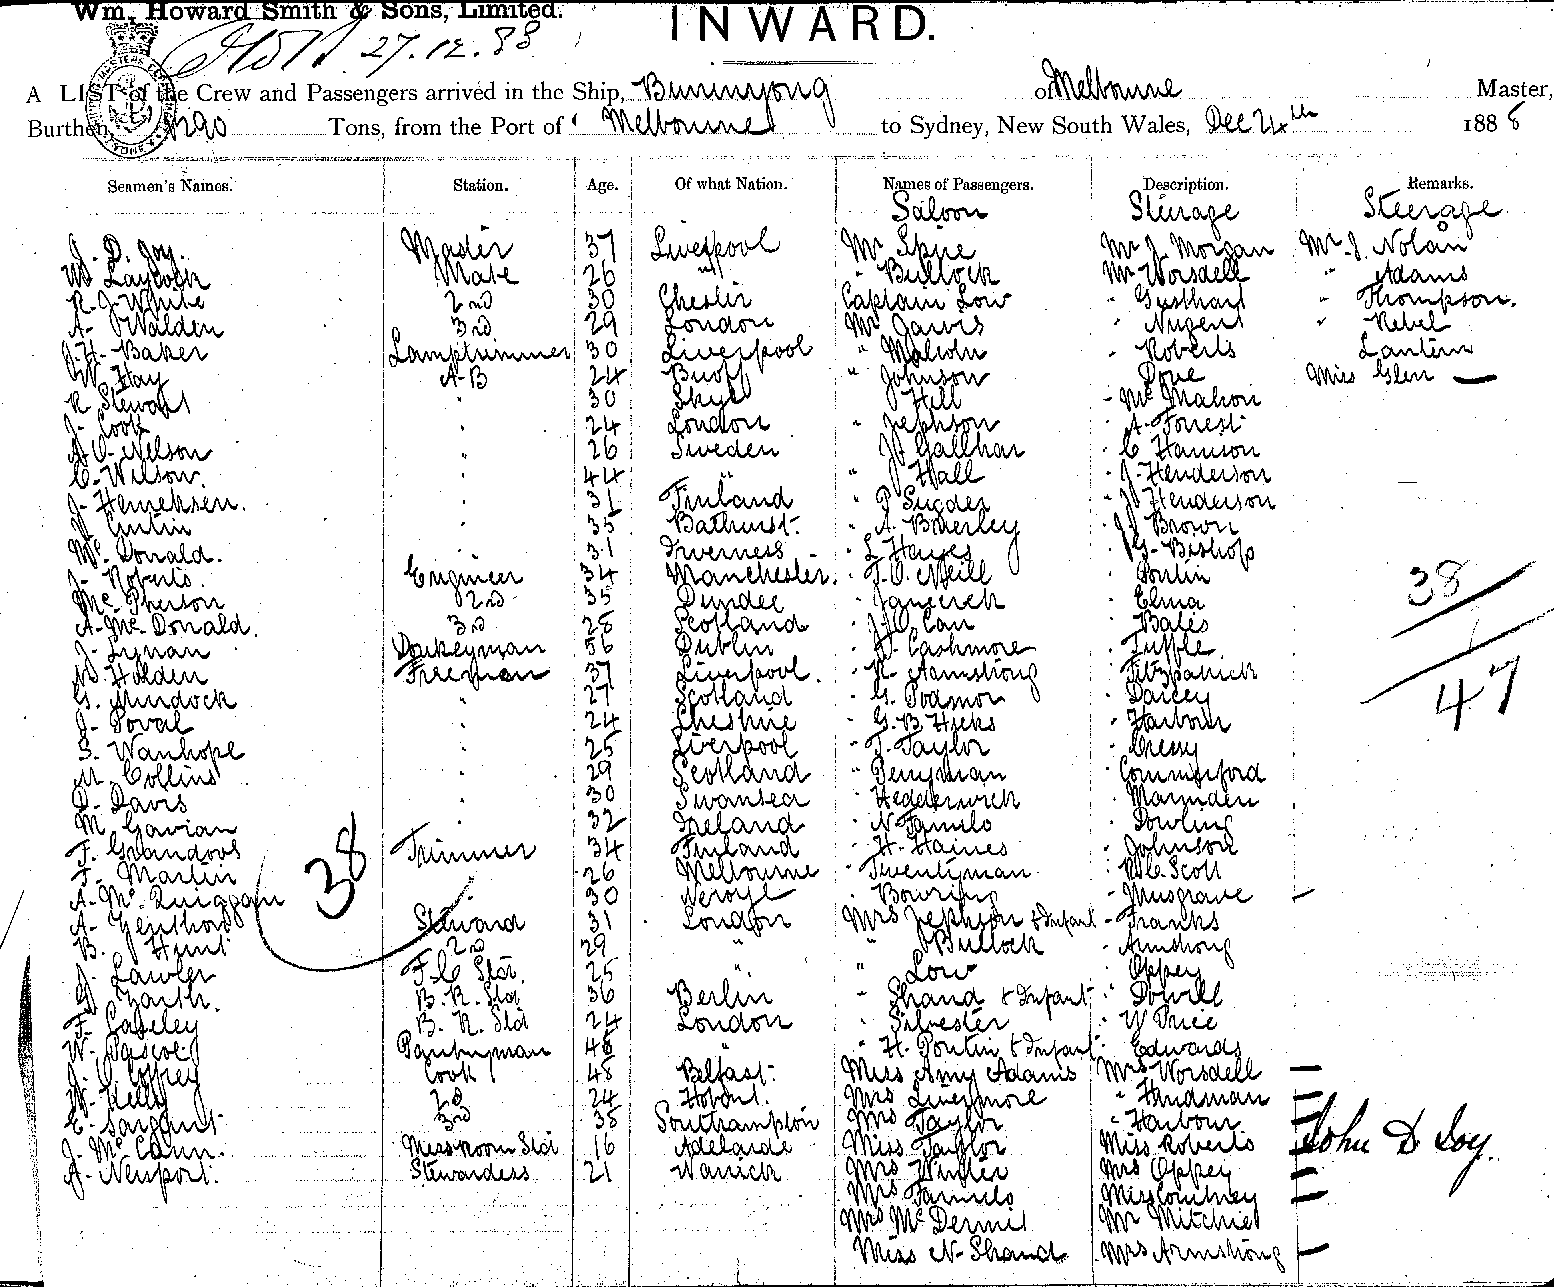 Wm. Howard Smith & Sons, Limited.
INWARD.
27.12.88
A LIST of the Crew and Passengers arrived in the Ship, Buninyong of Melbourne Master,
Burthen, 1290 Tons, from the Port of Melbourne to Sydney, New South Wales, Dec 24th 1888
Seamen's Names. Station. Age. Of what Nation. Names of Passengers. Description. Remarks.
Saloon Steerage Steerage
J. D. Joy. Master 37 Liverpool Mr Spie Mr J. Morgan Mr J. Nolan
W Laycock Mate 26 " " Bullock Mr Worsdell " Adams
R. J. White 2nd 30 Chester Captain Low " Gusthart " Thompson.
A. Walden 3rd 29 London Mr Jarvis " Nugent " Kebel
J. H. Baker Lamptrimmer 30 Liverpool " Malcolm " Roberts Lantern
W. Hay A.B 24 " Johnson Dove Miss Glen —
R Stewart " 30 Skye Hill " McMahon
J. Cook " 24 London " Jephson " A. Forrest
A. O. Nelson " 26 Sweden " J Gallhar " C Harrison
C. Wilson. " 44 " " J Hall " J. Henderson
J. Henricksen. " 31 Finland " P Sugden " J Henderson
J. " 35 Bathurst. " A. Brierley " J. Brown
McDonald. " 31 Inverness " L Hayes " G. Bishop
J. Roberts. Engineer 34 Manchester. " J. O. Neill " Pontin
McPherson 2nd 35 Dundee " " Elma
A. McDonald. 3rd 28 Scotland " J. O. Can " Bates
J. Lynan Donkeyman 56 Dublin " J. Cashmore " Tuffle
N. Holden Fireman 37 Liverpool. " R. Armstrong " Fitzpatrick
G. Murdock " 27 Scotland " G. Podmor " Darcey
J. Poval " 24 Cheshire " G. B. Hicks " Harbour
S. Wanhope " 25 Liverpool " J. Taylor " Creery
M. Collins " 29 Scotland " Perryman " Commerford
D. Davis " 30 Swansea " Hedderwick " Marnden
M Gavian " 32 Ireland " N Tamilo " Dowling
F. Grandoos Trimmer 34 Finland " H. Haines " Johnson
F. Martin 26 Melbourne " Twentyman " R. C. Scott
A. McQuiggan 30 " Bowring " Musgrave —
A. Steward 31 London Mrs Jephson & Infant " Franks
B. Hunt 2nd 29 " " Bullock " Armstrong
J. Lawler F. C. Std. 25 " " Low " Oppey
J. Zarth. B. R. Std 36 Berlin " Shand & Infant " Dowill
F. Gaseley B. R. Std 24 London " Silvester " W Price
W. Pascoe Pantryman 46 " " H. Pontin & Infant " Edwards
J. Coffey Cook 48 Belfast. Miss Amy Adams Mrs Worsdell —
W. Kelly 2d 24 Hobart. Mrs Livermore " Handman —
E. Sargant. 3rd 35 Southampton Mrs Taylor " Harbour —
J. McCann. Messroom Std 16 Adelaide Miss Taylor Miss Roberts —
A. Newport. Stewardess 21 Warwick Mrs Winter Mrs Oppey —
Mrs Tamilo Miss Courtney —
Mrs McDermid Mr Mitchiel
Miss N. Shand Mrs Armstrong —
38
38
47
John D Joy.